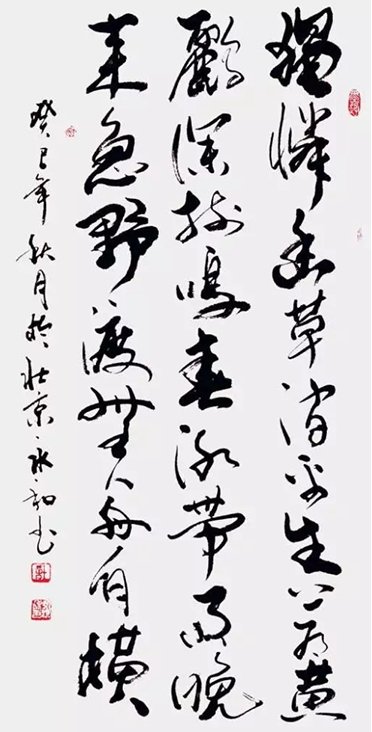 獨憐幽草澗邊生上有黄
鸝深樹鳴春潮帶雨晚
来急野渡無人舟自横
癸巳年秋月於北京永书